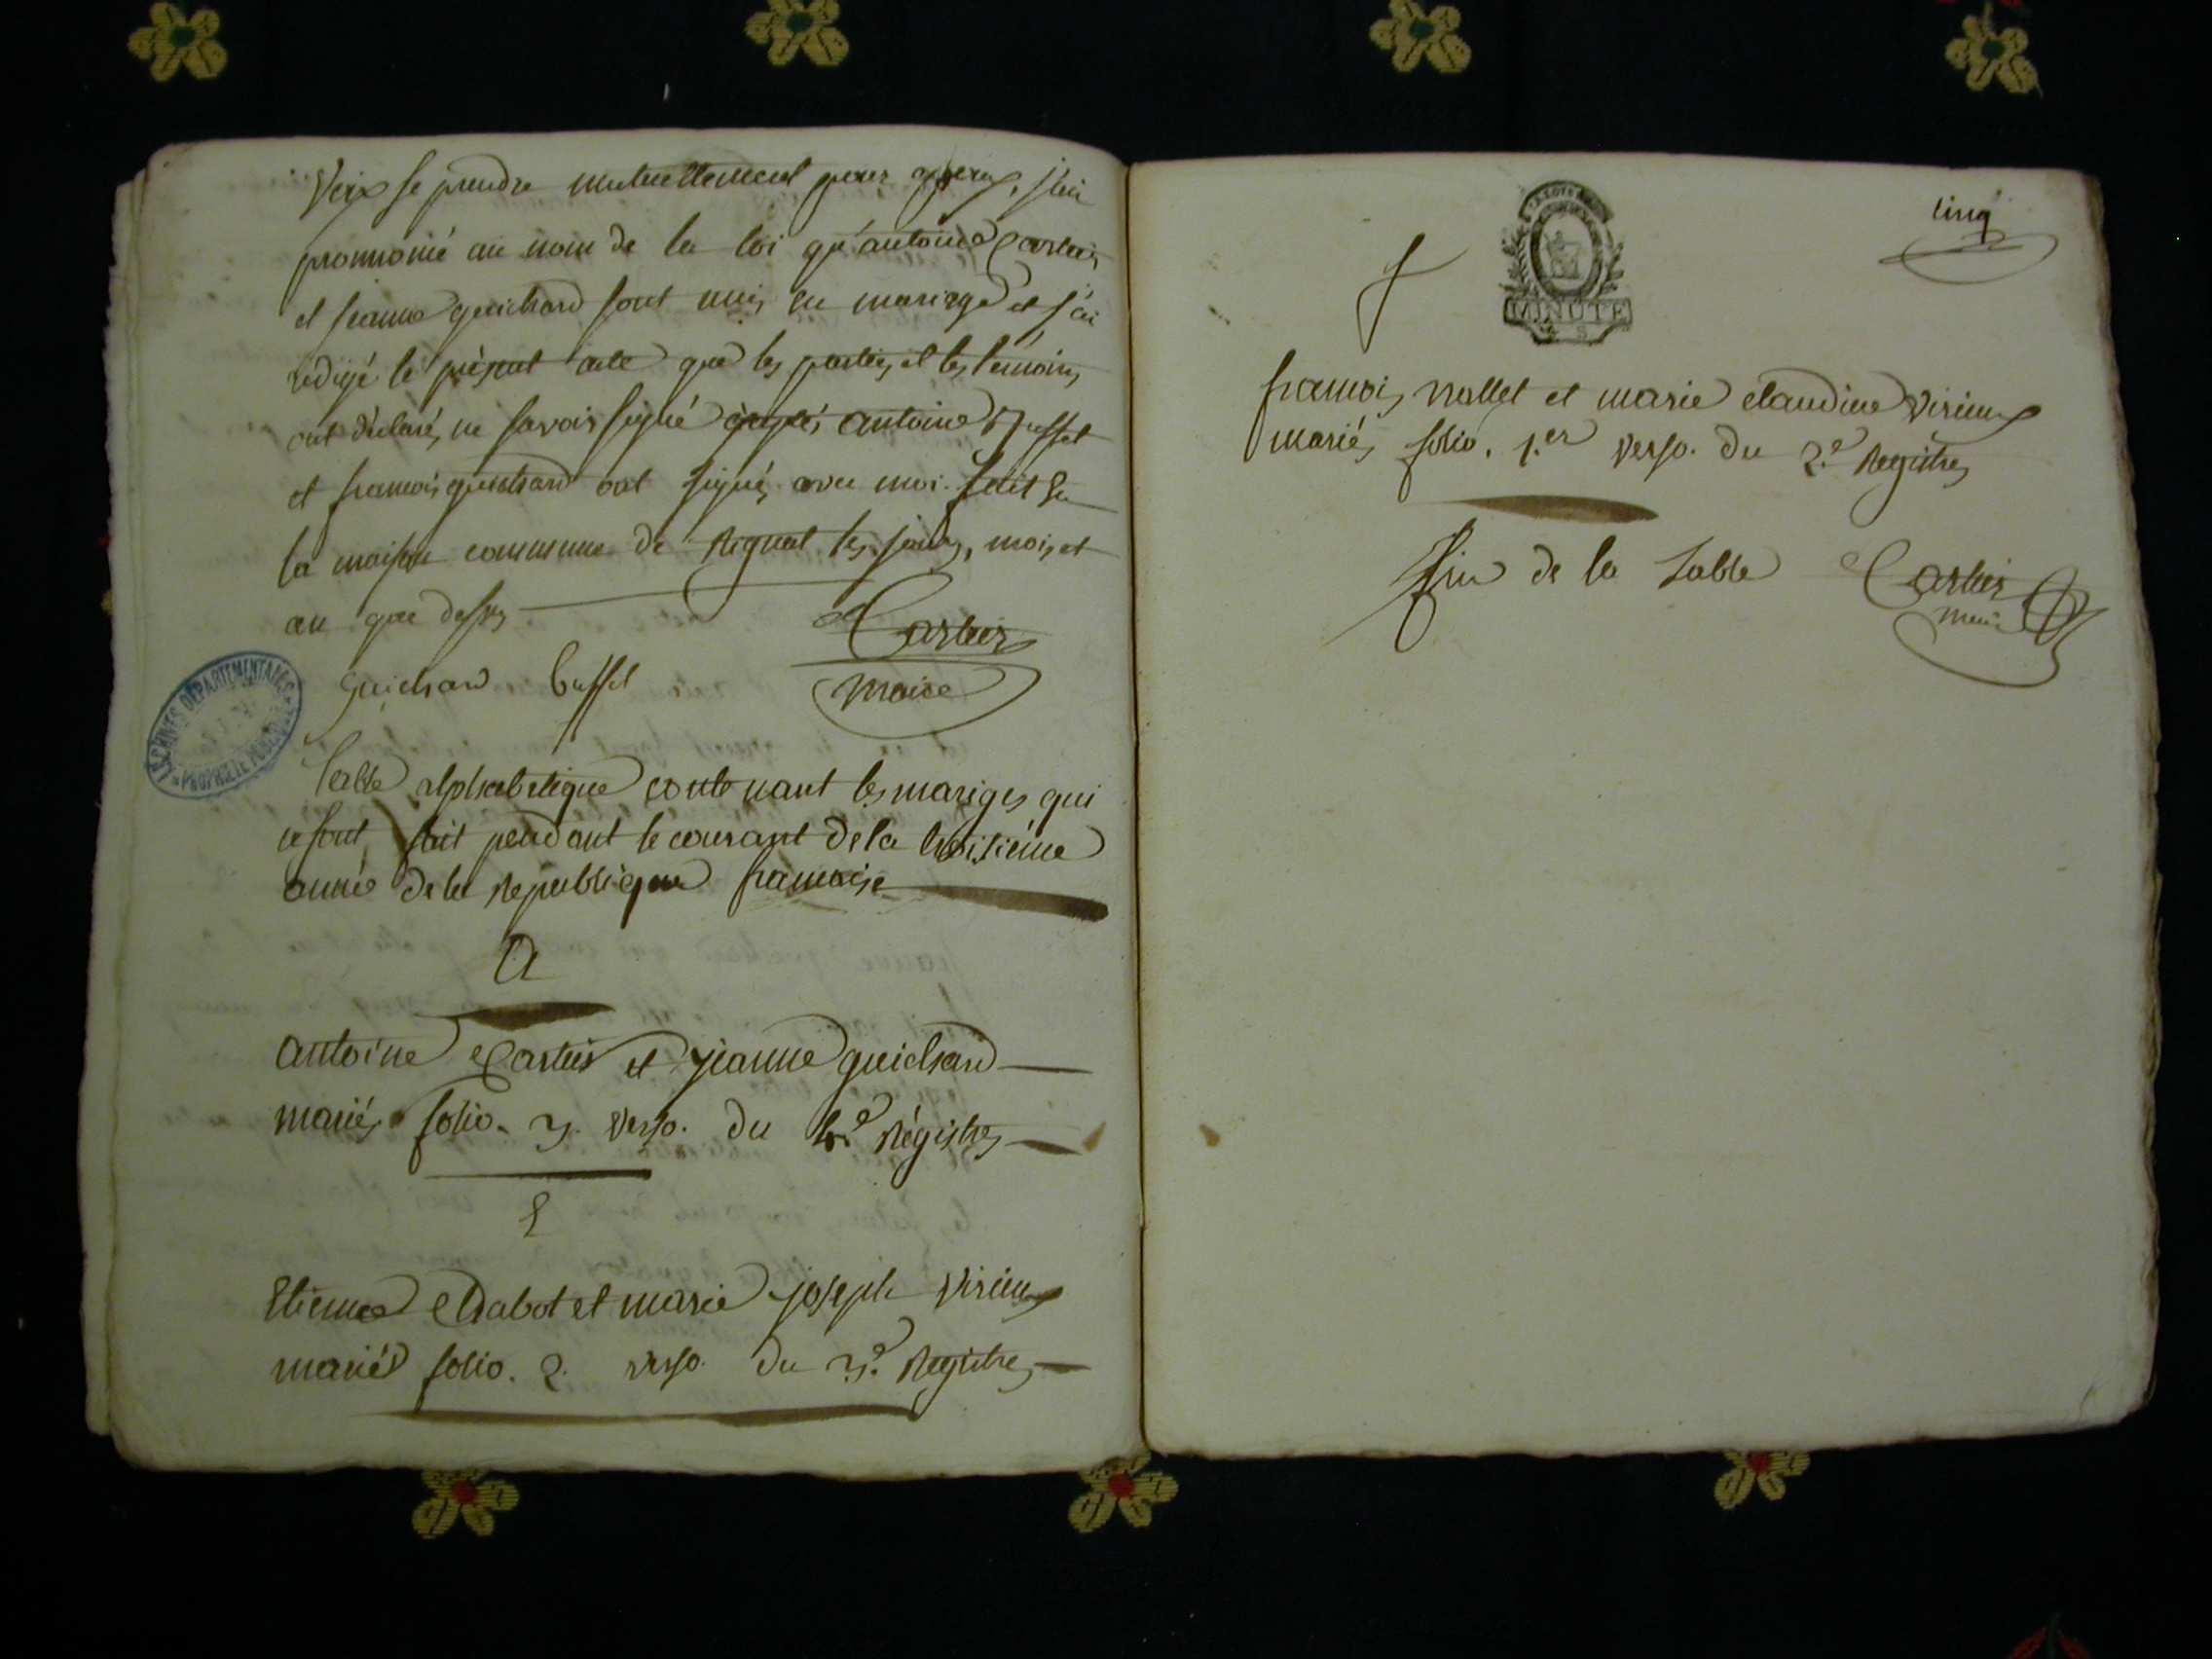 Voix se prendre mutuellement pour époux, j'ai
prononcé au nom de la loi qu'antoine Cartier
et jeanne guichard sont unis en mariage et j'ai
rédigé le présent acte que les parties et les témoins
ont déclarés ne savoir signé antoine Buffet
et francois guichard ont signés avec moi. fait En
la maison commune de Regnat les jours, mois et
an que dessus
Cartier
guichard buffet maire
ARCHIVES DÉPARTEMENTALES
PROPRIÉTÉ PUBLIQUE
Table alphabetique contenant les mariges qui
se sont fait pendant le courant de la troisiéme
année de la Republique francaise
A
antoine Cartier et jeanne guichard
mariés folio. 3. verso. du Régistre
E
Etienne Chabot et marie joseph Virieux
mariés folio. 2. verso. du 3.e Registre
cinq
MINUTE
f
francois nollet et marie claudine Virieux
mariés folio. 1.er verso. du 2.e Registre
fin de la Table Cartier
maire